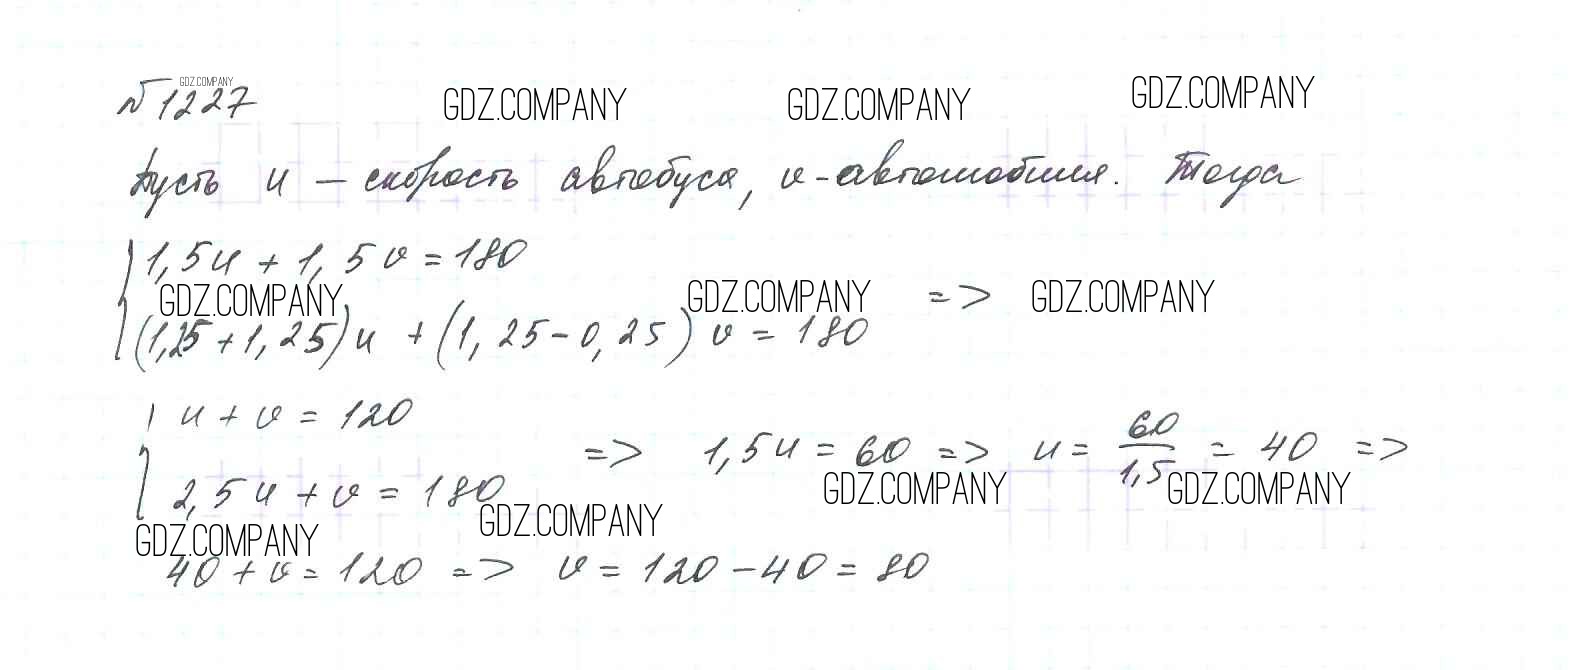 GDZ.COMPANY
№1227 GDZ.COMPANY GDZ.COMPANY GDZ.COMPANY
Пусть u – скорость автобуса, v - автомобиля. Тогда
1,5u + 1,5v = 180
GDZ.COMPANY GDZ.COMPANY => GDZ.COMPANY
(1,25 + 1,25)u + (1,25 - 0,25)v = 180
u + v = 120
=> 1,5u = 60 => u = 60/1,5 = 40 =>
2,5u + v = 180 GDZ.COMPANY GDZ.COMPANY
GDZ.COMPANY GDZ.COMPANY
40 + v = 120 => v = 120 - 40 = 80